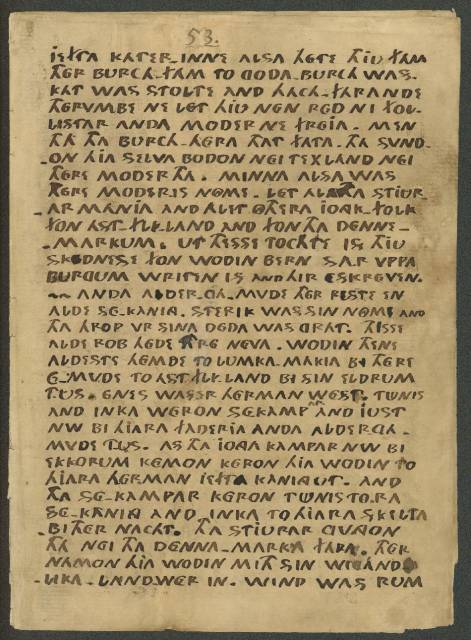 53.
JEFTA KATER-INNE ALSA HETE THJU FAM
THER BURCH-FAM TO GODA-BURCH WAS.
KAT WAS STOLTE AND HACH-FARANDE
THERVMBE NE LET HJU NEN RED NI FOL-
LISTAR ANDA MODER NE FREJA. MEN
THA THA BURCH-HERA THAT FATA. THA SVND-
ON HJA SELVA BODON NEI TEXLAND NEI
THERE MODER THA. MINNA ALSA WAS
THERE MODER.IS NOME. LET ALA THA STJUR-
AR MANIA AND ALET OTHERA JONGK-FOLK
FON AST-FLILAND AND FON THA DENNE-
MARKUM. UT THESSE TOCHTE IS THJU
SKEDNESE FON WODIN BERN SA-R VPPA
BURGUM WRITEN IS AND HIR ESKREVEN.
~~ ANDA ALDER-GA-MVDE THER RESTE EN
ALDE SE-KANING. STERIK WAS SIN NOME AND
THA HROP VR SINA DEDA WAS GRAT. THISSE
ALDE ROB HEDE THRE NEVA. WODIN THENE
ALDESTE HEMDE TO LUMKA-MAKIA BI THERE
E-MVDE TO AST-FLILAND BI SIN ELDRUM
T.US. ENES WASER HERMAN WEST. TUNIS
AND INKA WERON SEKAMPAR AND JUST
NW BI HJARA FADERJA ANDA ALDERGA-
MVDE T.US. AS THA JONGA KAMPAR NW BI
EKKORUM KEMON KERON HJA WODIN TO
HJARA HERMAN JEFTA KANING UT. AND
THA SE-KAMPAR KERON TUNIS TO.RA
SE-KANING AND INKA TO HJARA SKELTA
BITHER NACHT. THA STJURAR GVNGON
THA NEI THA DENNA-MARKA FARA. THER
NAMON HJA WODIN MITH SIN WIGAND-
LIKA-LANDWER IN. WIND WAS RUM